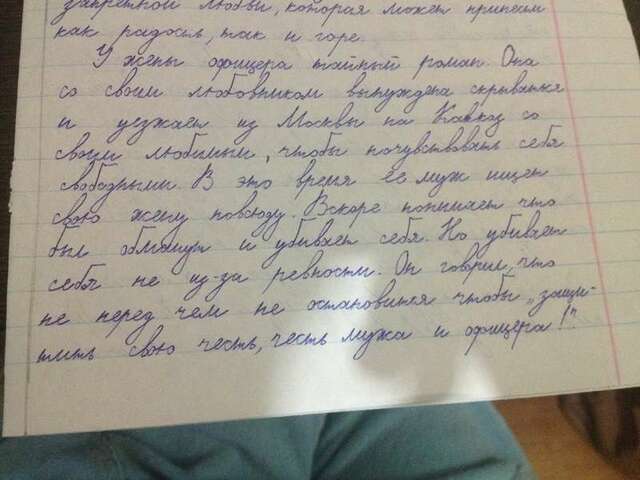 запретной любви, которая может принести
как радость, так и горе.
У жены офицера тайный роман. Она
со своим любовником вынуждена скрываться
и уезжает из Москвы на Кавказ со
своим любимым, чтобы почувствовать себя
свободными. В это время её муж ищет
свою жену повсюду. Вскоре понимает что
был обманут и убивает себя. Но убивает
себя не из-за ревности. Он говорил, что
не перед чем не остановится чтобы „защи-
тить свою честь, честь мужа и офицера!".